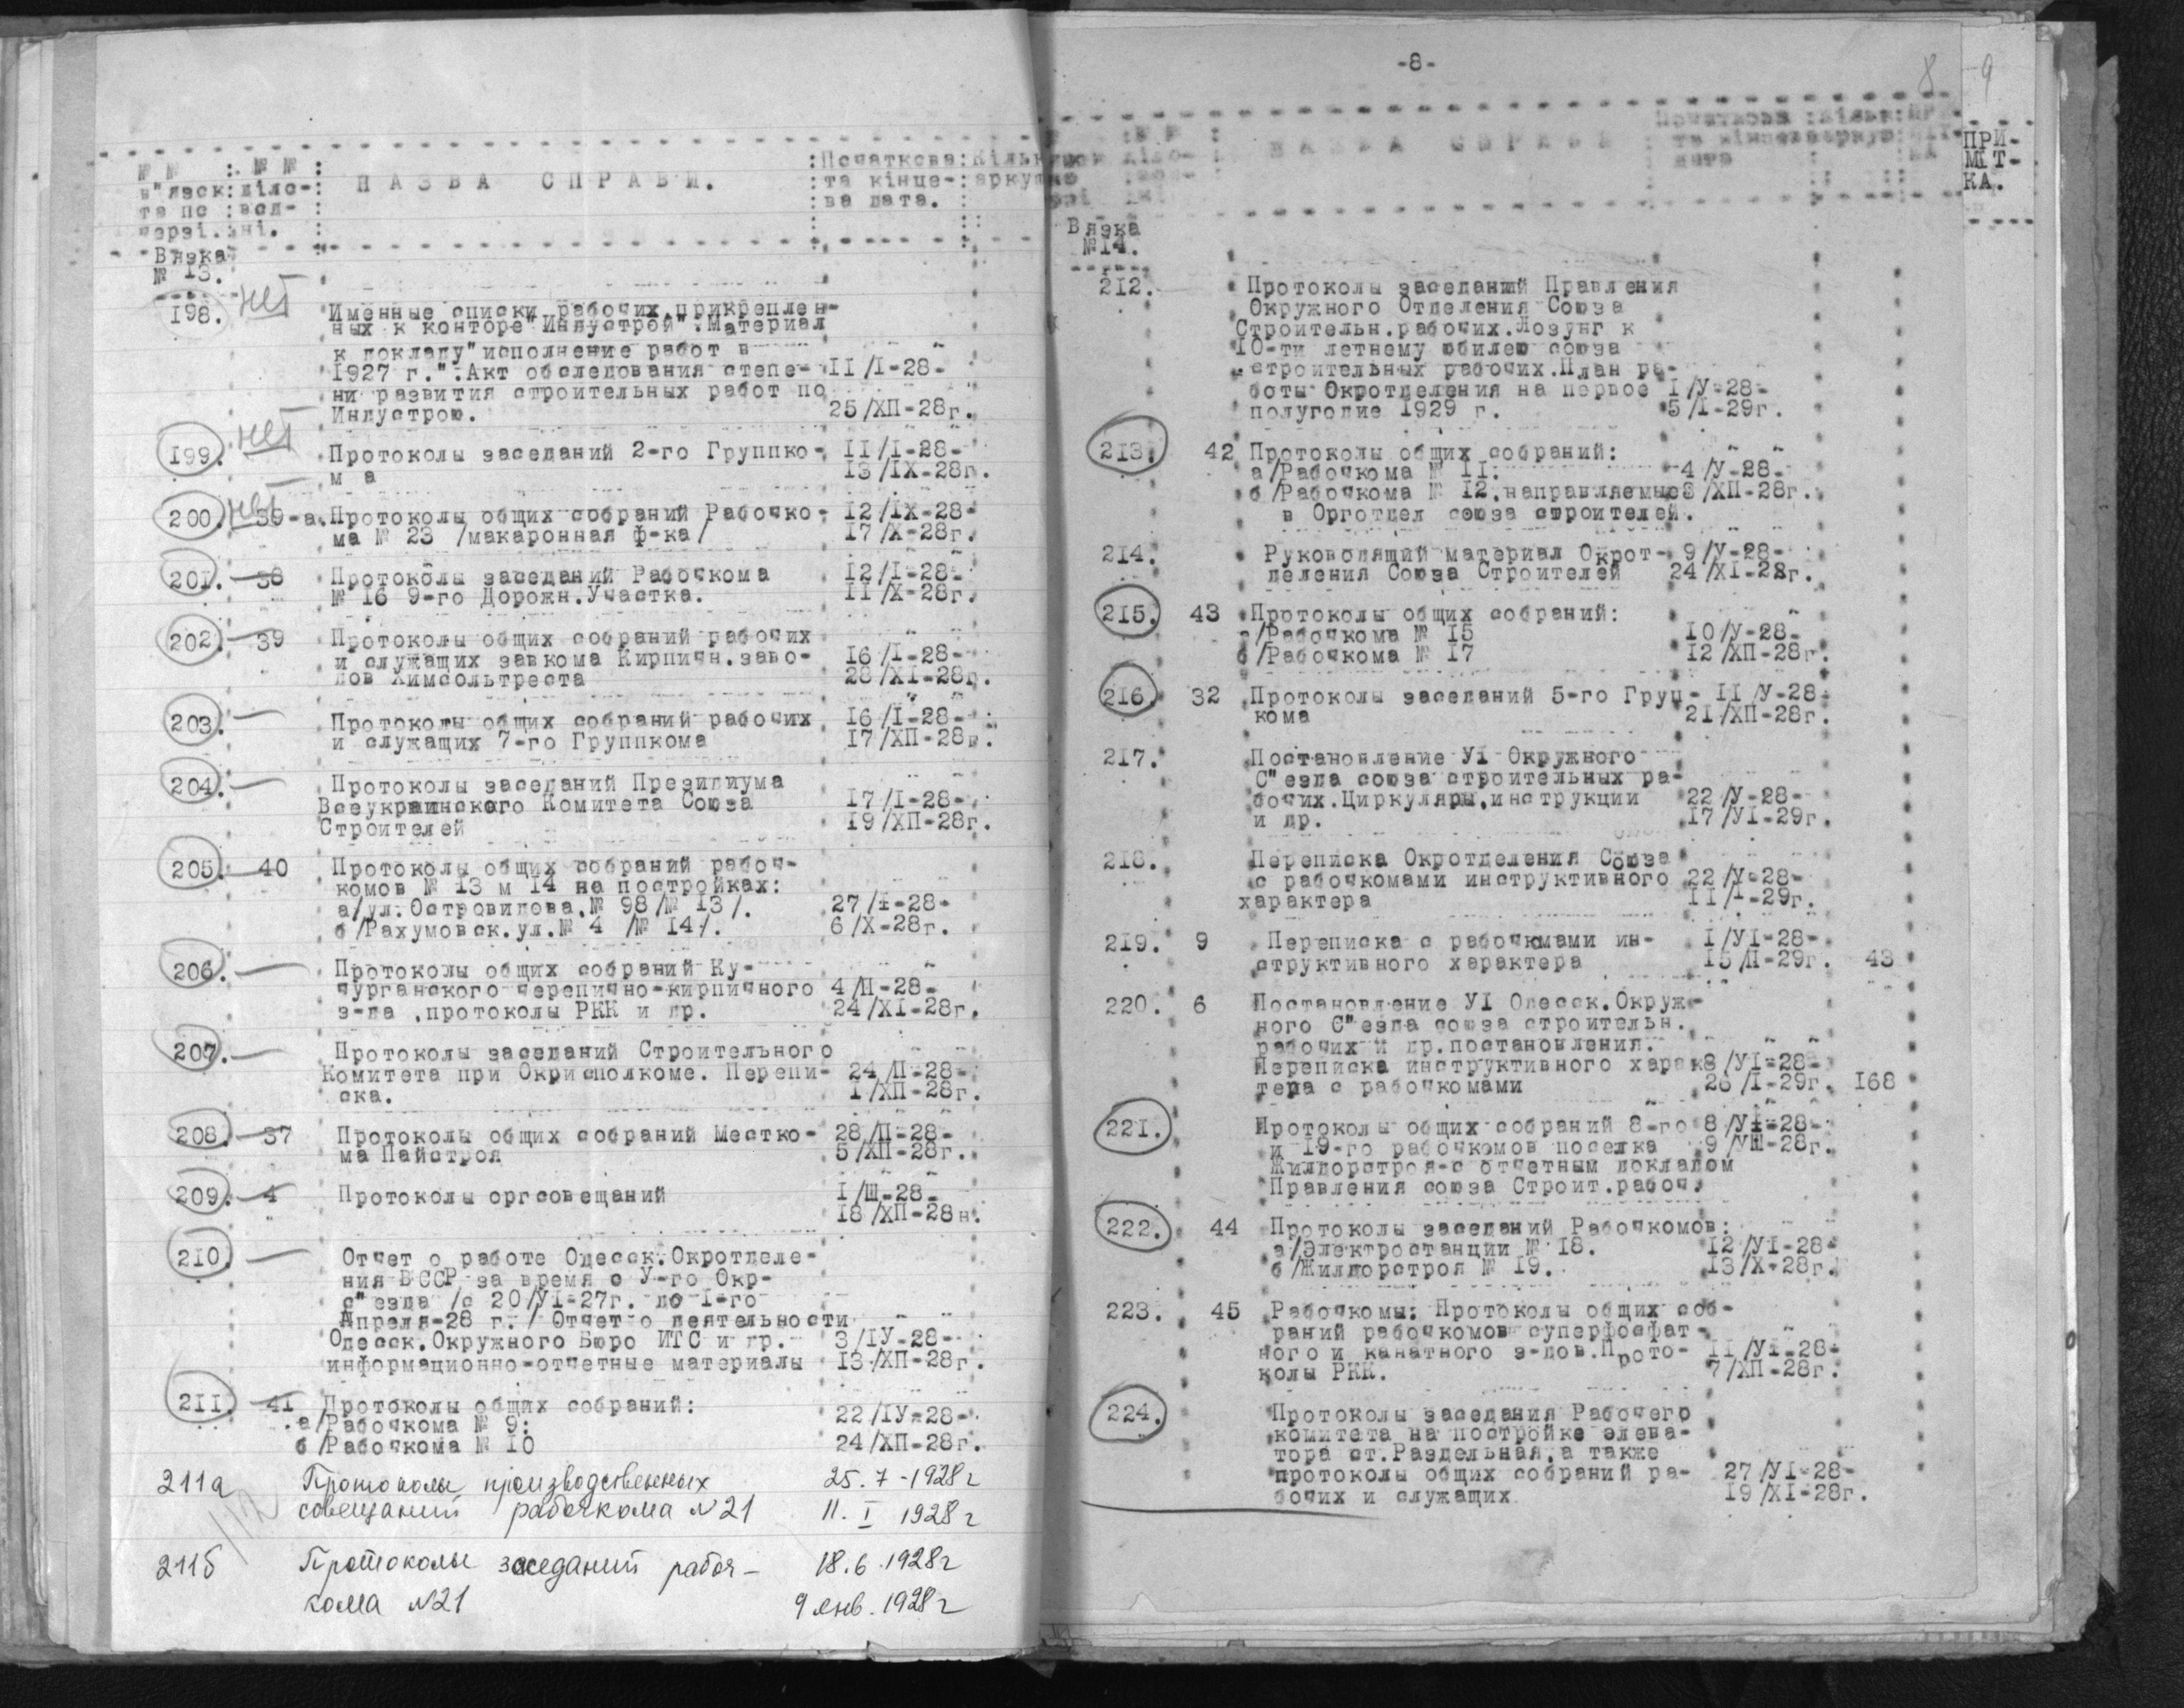 № № : № № : : Початкова: Кільк
в"язок: діло- : НАЗВА СПРАВИ. : та кінце- : аркуш
та по : вод- : : ва дата. :
черзі. ні.
Вязка
№ 13.
198. нет Именные списки рабочих, прикреплен-
ных к конторе "Индустрой". Материал
к докладу "исполнение работ в
1927 г.". Акт обследования степе- II/I-28-
ни развития строительных работ по
Индустрою. 25/ХП-28г.
199. нет Протоколы заседаний 2-го Группко- II/I-28-
м а 13/IX-28г.
200. нет 39-а. Протоколы общих собраний Рабочко- 12/IX-28-
ма № 23 /макаронная ф-ка/ 17/X-28г.
201. 38 Протоколы заседаний Рабочкома 12/I-28-
№ 16 9-го Дорожн.Участка. II/X-28г.
202. 39 Протоколы общих собраний рабочих
и служащих завкома Кирпичн.заво- 16/I-28-
дов Химсольтреста 28/XI-28г.
203. — Протоколы общих собраний рабочих 16/I-28-
и служащих 7-го Группкома 17/ХП-28г.
204. — Протоколы заседаний Президиума
Всеукраинского Комитета Союза 17/I-28-
Строителей 19/ХП-28г.
205. 40 Протоколы общих собраний рабоч-
комов № 13 м 14 на постройках:
а/ул.Островидова,№ 98/№ 13/. 27/I-28-
б/Рахумовск.ул.№ 4 /№ 14/. 6/X-28г.
206. — Протоколы общих собраний Ку-
чурганского черепично-кирпичного 4/П-28-
з-да ,протоколы РКК и др. 24/XI-28г.
207. — Протоколы заседаний Строительного
Комитета при Окрисполкоме. Перепи- 24/П-28-
ска. I/ХП-28г.
208. 37 Протоколы общих собраний Местко- 28/П-28-
ма Пайстроя 5/ХП-28г.
209. 4 Протоколы оргсовещаний I/Ш-28-
18/ХП-28н.
210. — Отчет о работе Одесск.Окротделе-
ния ВССР за время с У-го Окр-
с"езда /с 20/УI-27г. до I-го
Апреля-28 г./ Отчет о деятельности
Одесск.Окружного Бюро ИТС и др. 3/IУ-28-
информационно-отчетные материалы 13/ХП-28г.
211. 41 Протоколы общих собраний:
а/Рабочкома № 9: 22/IУ-28-
б/Рабочкома № 10 24/ХП-28г.
211а Протоколы производственных 25.7-1928г
совещаний рабочкома N21 11. I 1928г
211б Протоколы заседаний рабоч- 18.6.1928г
кома N21 9 янв. 1928г
-8-
8 9
НАЗВА СПРАВИ
ПРИ-
МІТ-
КА.
Вязка
№14.
212. Протоколы заседаний Правления
Окружного Отделения Союза
Строительн.рабочих.Лозунг к
10-ти летнему юбилею союза
строительных рабочих.План ра-
боты Окротделения на первое I/У-28-
полугодие 1929 г. 5/I-29г.
213. 42 Протоколы общих собраний:
а/Рабочкома № II: 4/У-28-
б/Рабочкома № 12,направляемые3/ХП-28г.
в Орготдел союза строителей.
214. Руководящий материал Окрот- 9/У-28-
деления Союза Строителей 24/XI-28г.
215. 43 Протоколы общих собраний:
а/Рабочкома № 15 10/У-28-
б/Рабочкома № 17 12/ХП-28г.
216. 32 Протоколы заседаний 5-го Груп- II/У-28-
кома 21/ХП-28г.
217. Постановление УI Окружного
С"езда союза строительных ра-
бочих.Циркуляры,инструкции 22/У-28-
и др. 17/УI-29г.
218. Переписка Окротделения Союза
с рабочкомами инструктивного 22/У-28-
характера II/I-29г.
219. 9 Переписка с рабочкмами ин- I/УI-28-
структивного характера 15/П-29г. 43
220. 6 Постановление УI Одесск.Окруж-
ного С"езда союза строительн.
рабочих и др.постановления.
Переписка инструктивного харак8/УI-28-
тера с рабочкомами 26/I-29г. 168
221. Протоколы общих собраний 8-го 8/УI-28-
и 19-го рабочкомов поселка 9/УШ-28г.
Жилдорстроя-с отчетным докладом
Правления союза Строит.рабоч.
222. 44 Протоколы заседаний Рабочкомов:
а/Электростанции № 18. 12/УI-28-
б/Жилдорстроя № 19. 13/X-28г.
223. 45 Рабочкомы: Протоколы общих соб-
раний рабочкомов суперфосфат-
ного и канатного з-дов.Прото- II/УI-28-
колы РКК. 7/ХП-28г.
224. Протоколы заседания Рабочего
комитета на постройке элева-
тора ст.Раздельная,а также
протоколы общих собраний ра- 27/УI-28-
бочих и служащих 19/XI-28г.